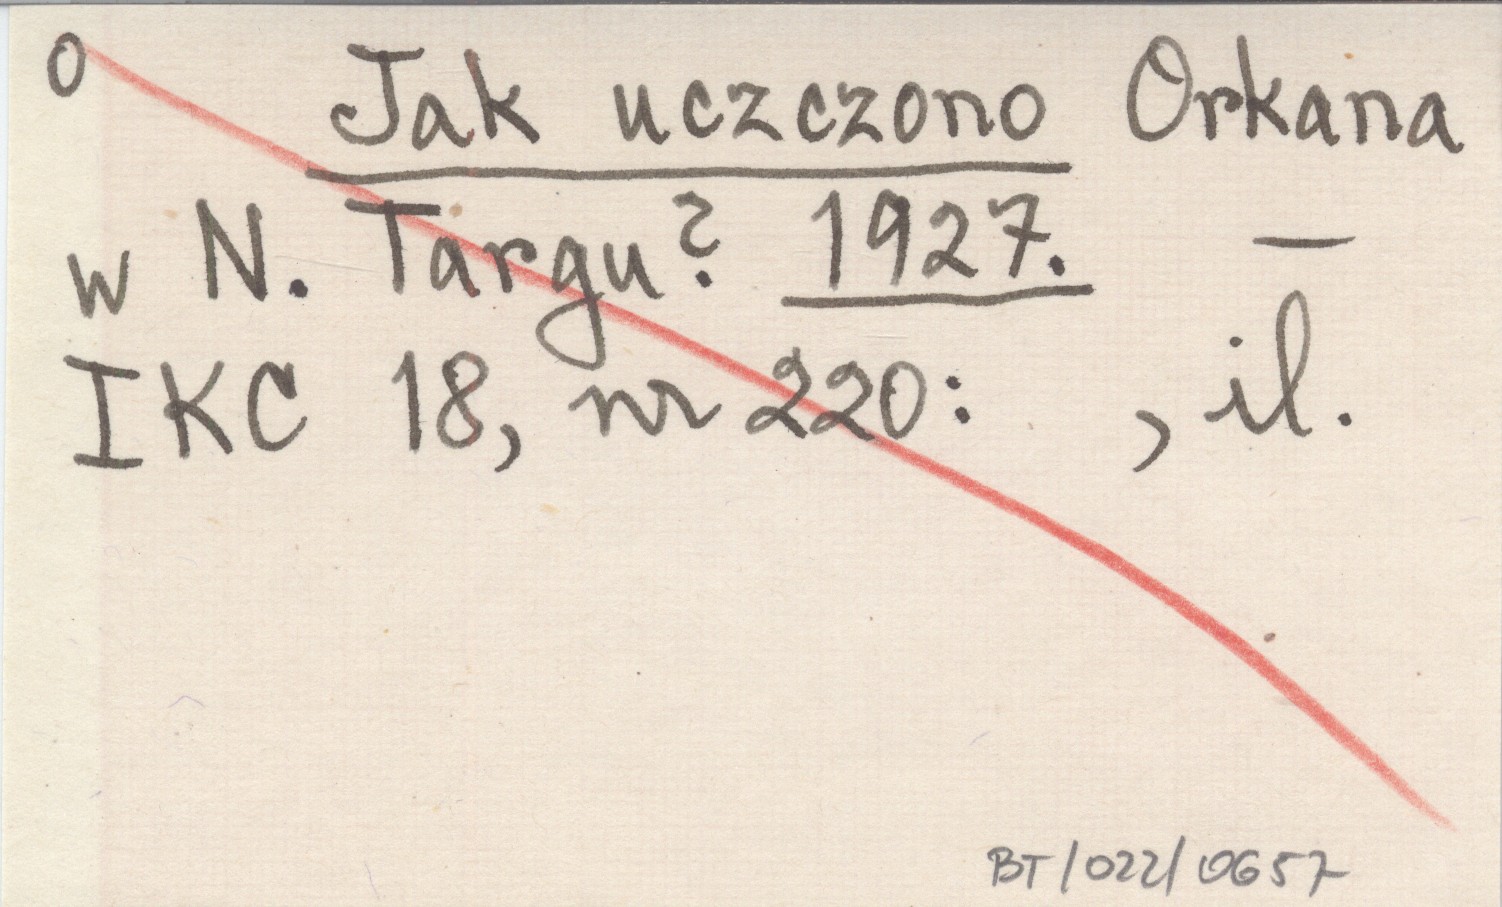 0 Jak uczczono Orkana
w N. Targu? 1927. —
IKC 18, nr 220: , il.
BT/022/0657